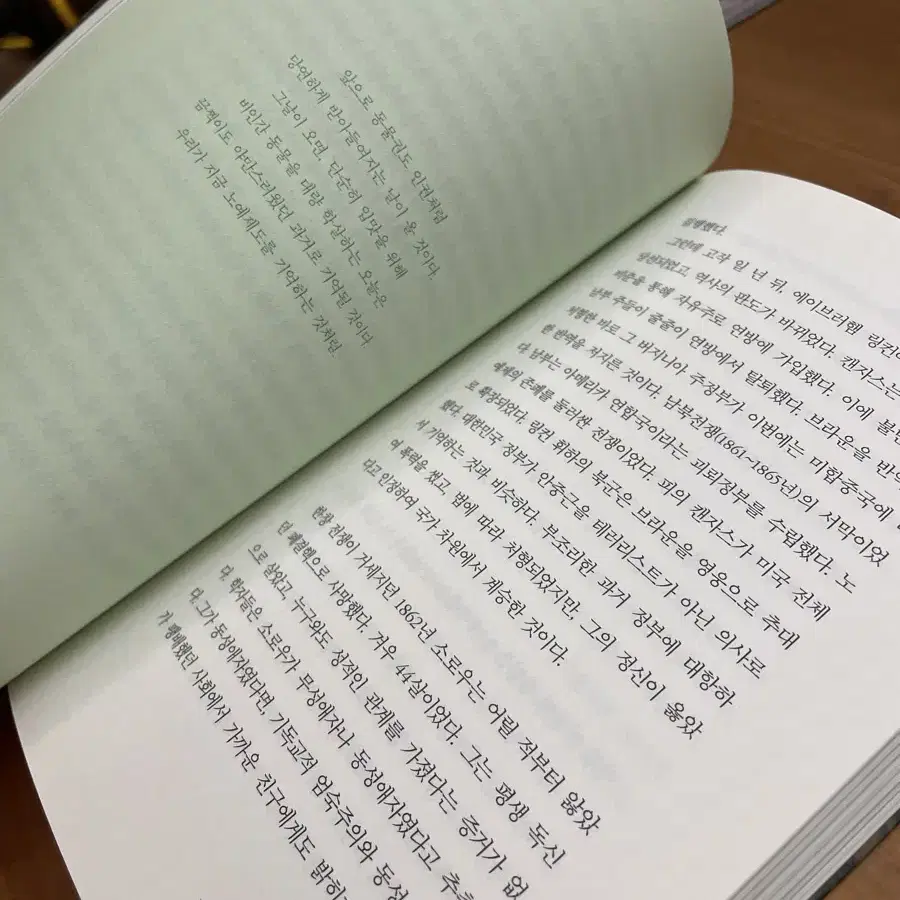 앞으로 동물권도 인권처럼
당연하게 받아들여지는 날이 올 것이다.
그날이 오면, 단순히 입맛을 위해
비인간 동물을 대량 학살하는 오늘은
끔찍이도 야만스러웠던 과거로 기억될 것이다
우리가 지금 노예제도를 기억하는 것처럼.
그런데 고작 일 년 뒤, 에이브러햄 링컨이
당선되었고, 역사의 판도가 바뀌었다. 캔자스는
비준을 통해 자유주로 연방에 가입했다. 이에
남부 주들이 줄줄이 연방에서 탈퇴했다. 브라운을
처벌한 바로 그 버지니아 주정부가 이번에는 미합중국에
한 반역을 저지른 것이다. 남북전쟁(1861~1865년)의 서막이었
다. 남부는 아메리카 연합국이라는 괴뢰정부를 수립했다. 노
예제의 존폐를 둘러싼 전쟁이었다. 피의 캔자스가 미국 전체
로 확장되었다. 링컨 휘하의 북군은 브라운을 영웅으로 추대
했다. 대한민국 정부가 안중근을 테러리스트가 아닌 의사로
서 기억하는 것과 비슷하다. 부조리한 과거 정부에 대항하
여 폭력을 썼고, 법에 따라 처형되었지만, 그의 정신이 옳았
다고 인정하여 국가 차원에서 계승한 것이다.
한창 전쟁이 거세지던 1862년 소로우는 어릴 적부터 앓았
던 폐결핵으로 사망했다. 겨우 44살이었다. 그는 평생 독신
으로 살았고, 누구와도 성적인 관계를 가졌다는 증거가 없
다. 학자들은 소로우가 무성애자나 동성애자였다고
다. 그가 동성애자였다면, 기독교적 엄숙주의와
가 팽배했던 사회에서 가까운 친구에게도